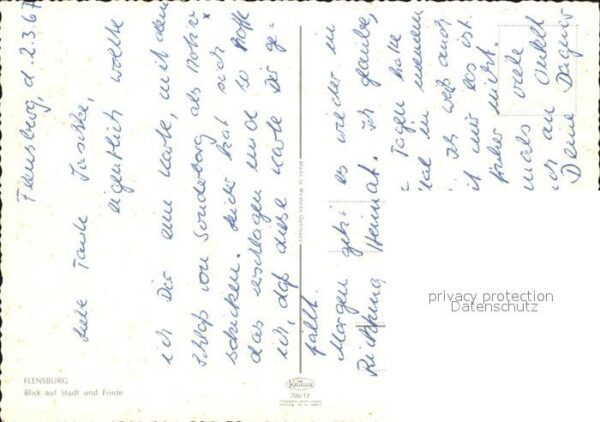 Flensburg d. 2.3.67
Liebe Tante Jaschke,
eigentlich wollte
ich Dir eine Karte, mit dem
Schloß von Sonderburg als Motiv
schicken. Leider hat sich
das zerschlagen und so hoffe
ich, daß diese Karte Dir ge-
fällt.
Morgen geht es wieder in
Richtung Heimat. Ich glaube,
Tagen hatte
mal in meinem
ich weiß auch
mir es ist.
früher nicht.
mals viele
an Onkel
Deine Dagmar
FLENSBURG
Blick auf Stadt und Förde
Krüger
706/12
privacy protection
Datenschutz